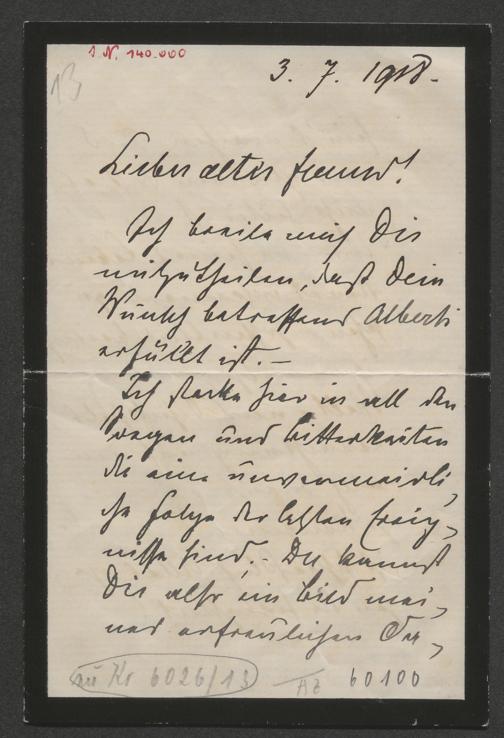 J. N. 140.000
13
3. 7. 1918.
Lieber alter Freund!
Ich beeile mich Dir
mitzutheilen, daß Dein
Wunsch betreffend Alberti
erfüllt ist. —
Ich stecke hier in all den
Sorgen und Bitterkeiten
die eine unvermeidli-
che Folge der letzten Ereig-
nisse sind. – Du kannst
Dir also ein Bild mei-
nes erfreulichen
zu Kr 6026/13
AZ 60100